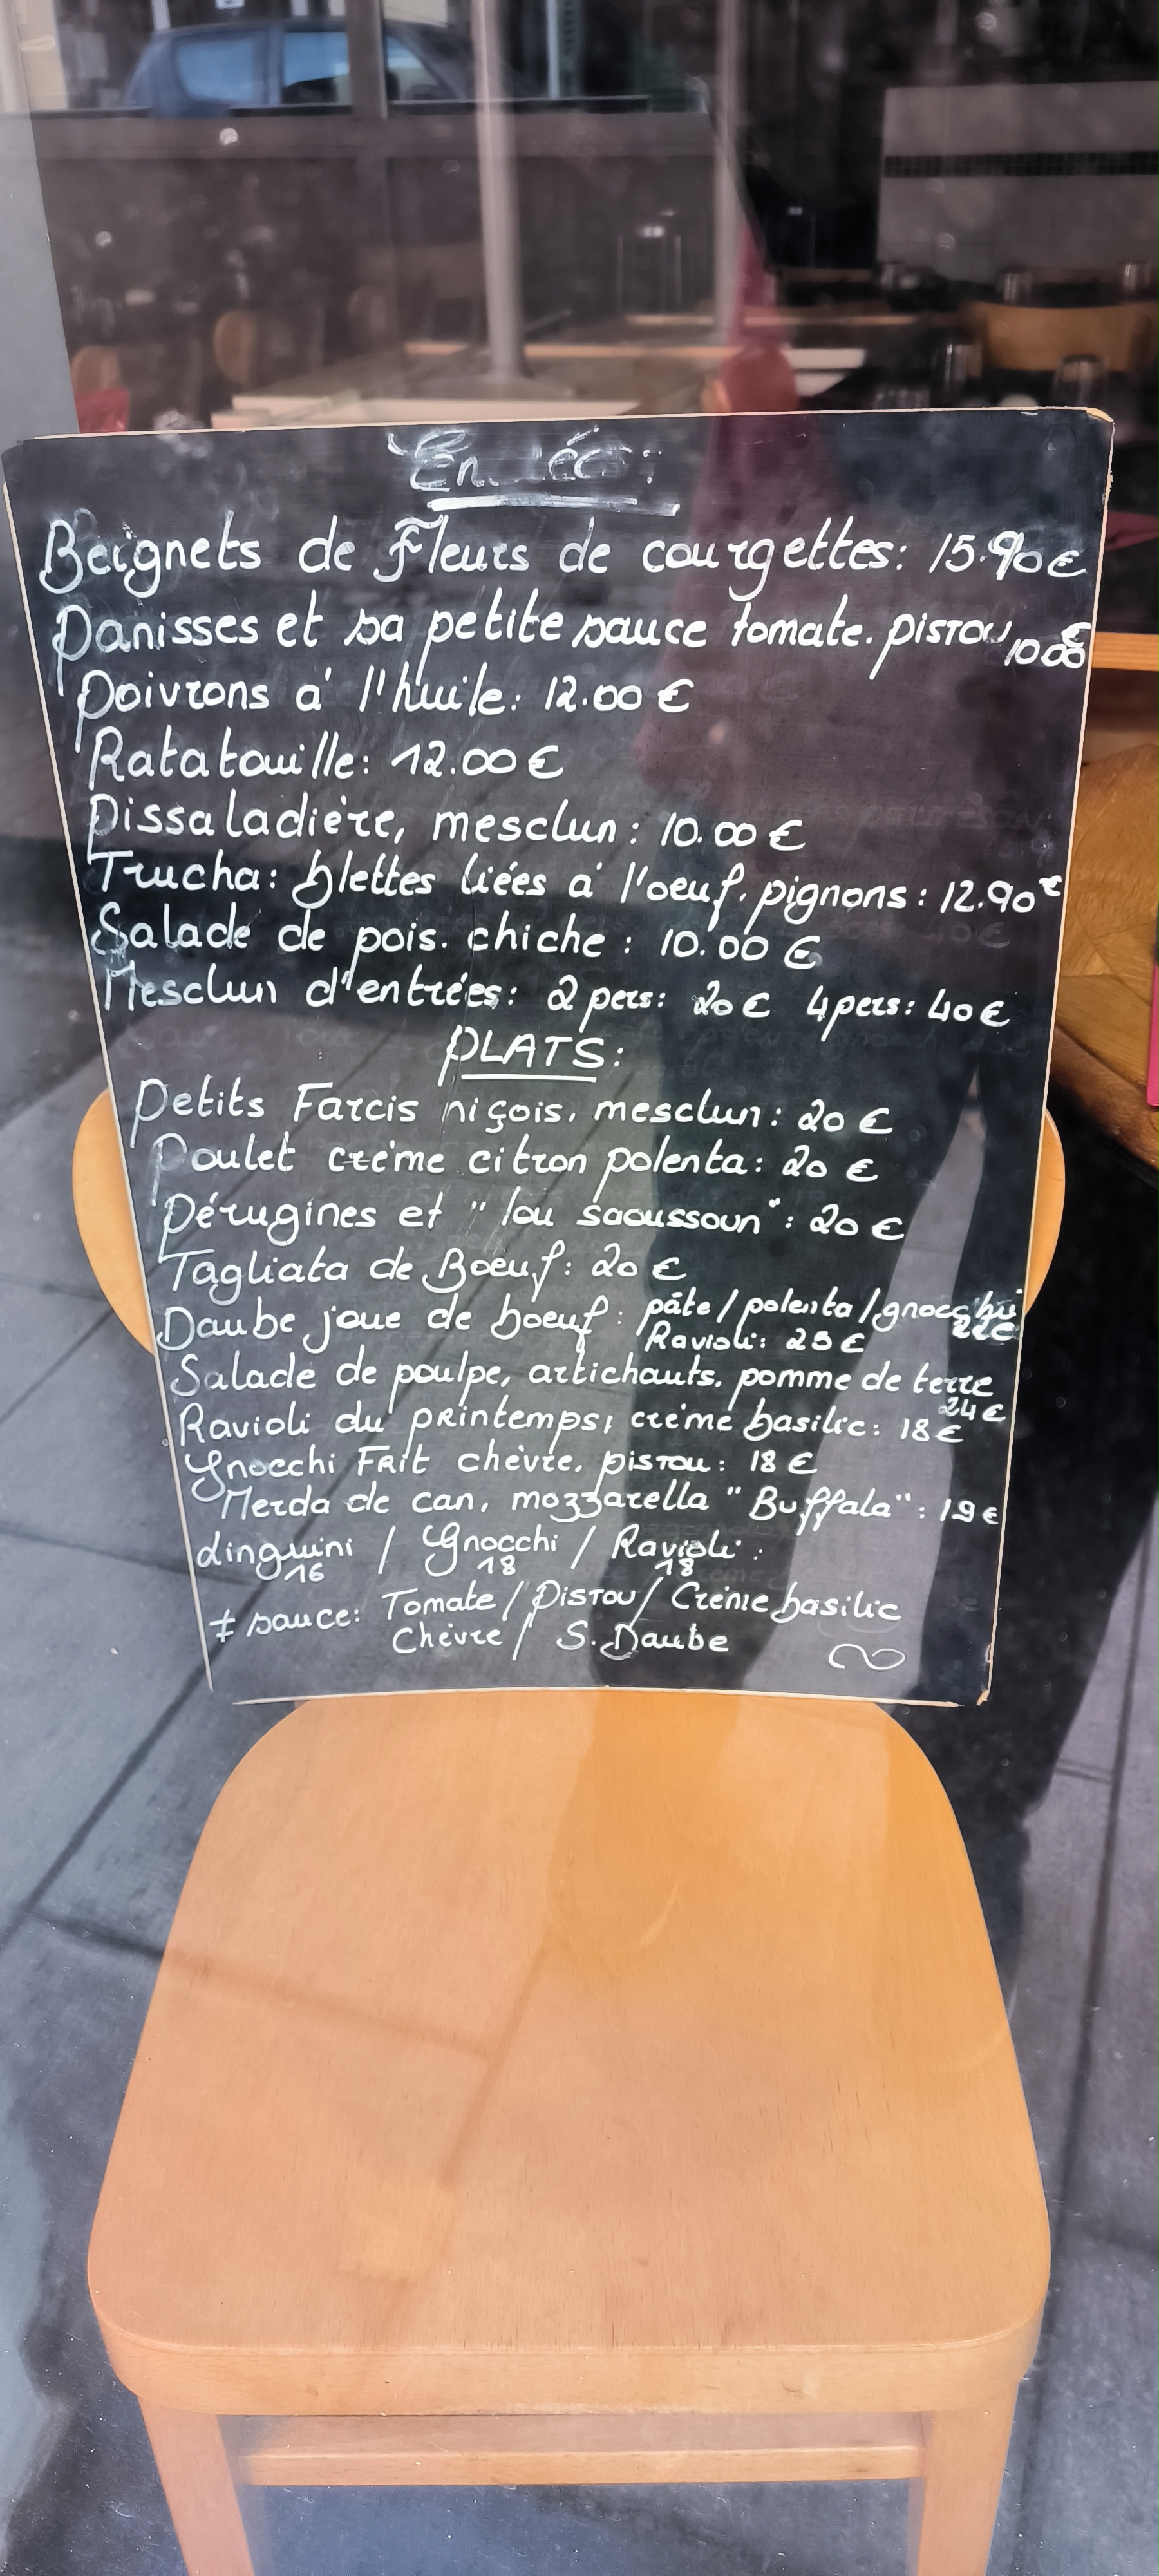 Beignets de Fleurs de courgettes: 15.90€
Panisses et sa petite sauce tomate. pistou 10.00€
Poivrons à l'huile: 12.00€
Ratatouille: 12.00€
Pissaladière, mesclun: 10.00€
Trucha: blettes liées à l'oeuf. pignons: 12.90€
Salade de pois. chiche: 10.00€
Mesclun d'entrées: 2 pers: 20€ 4 pers: 40€
PLATS:
Petits Farcis niçois, mesclun: 20€
Poulet crème citron polenta: 20€
Pérugines et "lou saoussoun": 20€
Tagliata de Boeuf: 20€
Daube joue de boeuf: pâte/polenta/gnocchi 22€
Ravioli: 23€
Salade de poulpe, artichauts, pomme de terre
24€
Ravioli du printemps, crème basilic: 18€
Gnocchi Frit chèvre, pistou: 18€
Merda de can, mozzarella "Buffala": 19€
Linguini / Gnocchi / Ravioli:
16 18 18
≠ sauce: Tomate / Pistou / Crème basilic
Chèvre / S. Daube